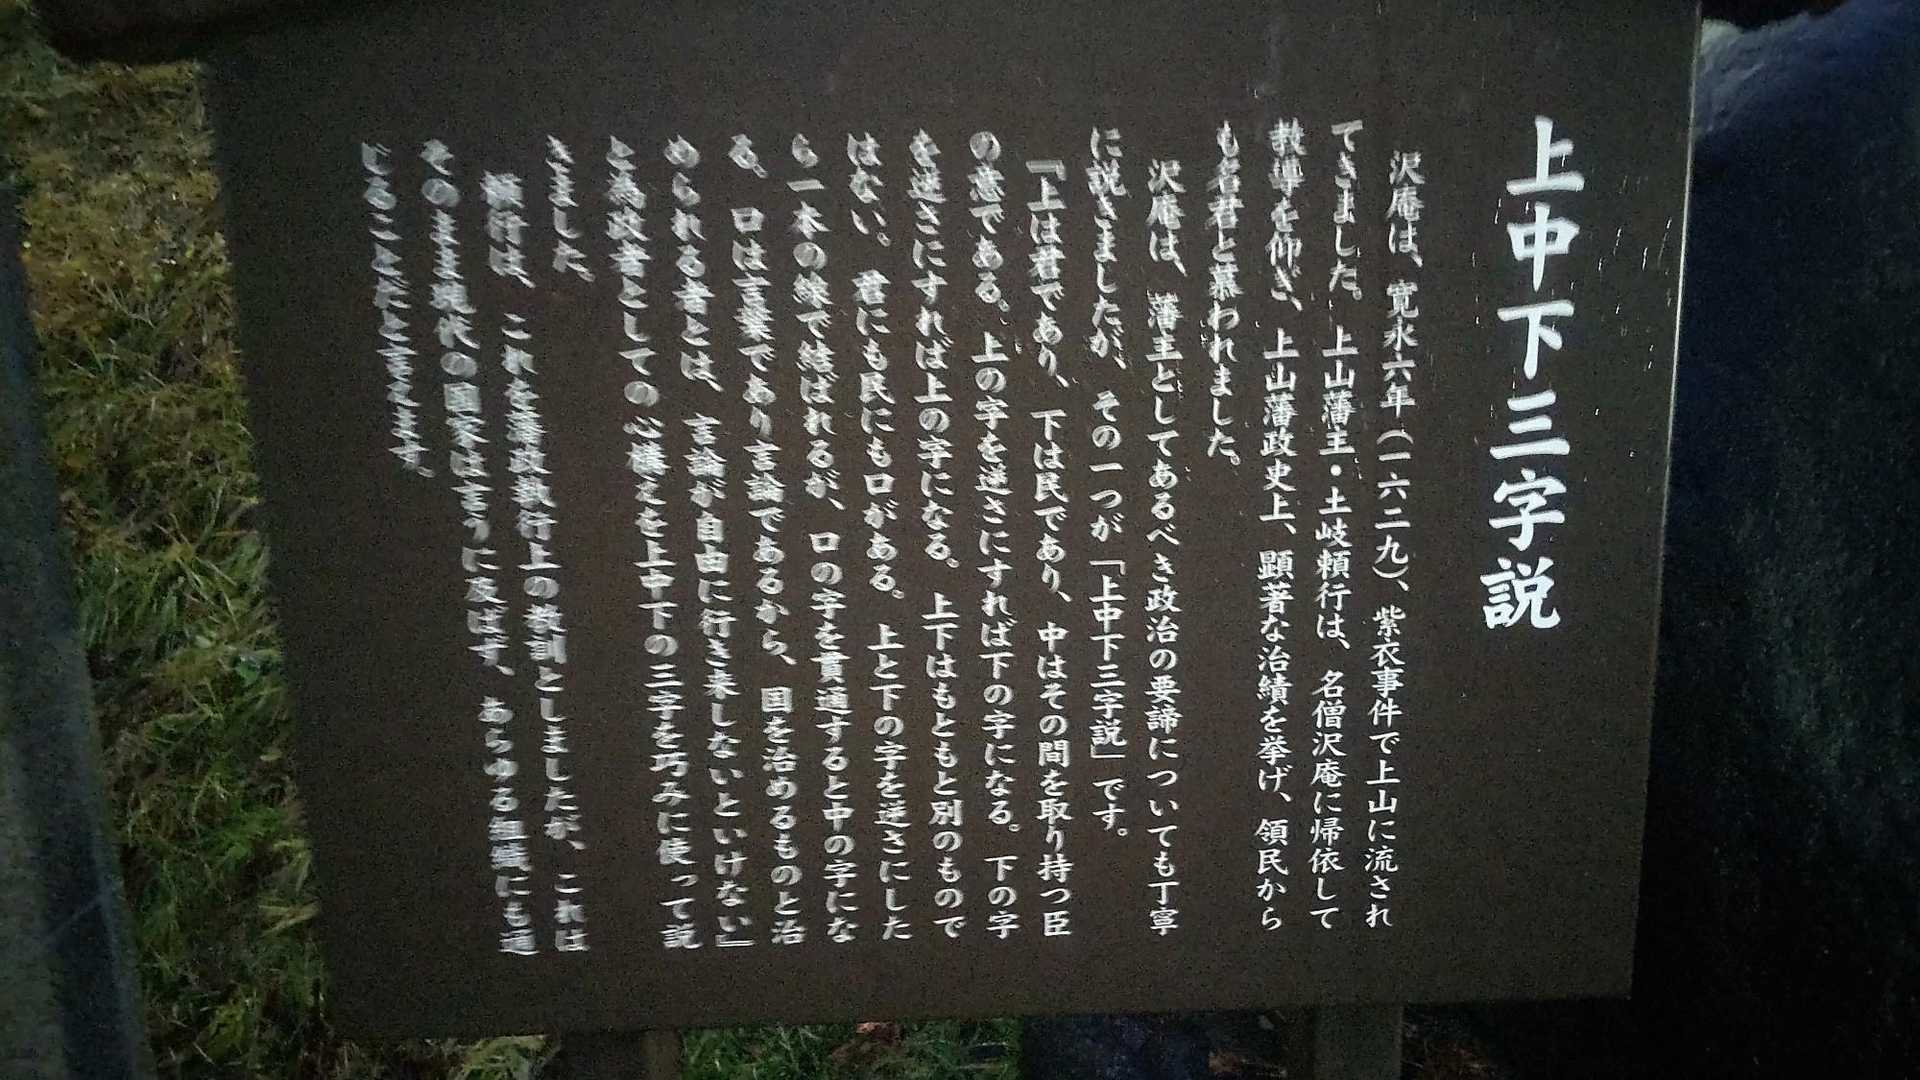 上中下三字説
沢庵は、寛永六年(一六二九)、紫衣事件で上山に流され
てきました。上山藩主・土岐頼行は、名僧沢庵に帰依して
教導を仰ぎ、上山藩政史上、顕著な治績を挙げ、領民から
も名君と慕われました。
沢庵は、藩主としてあるべき政治の要諦についても丁寧
に説きましたが、その一つが「上中下三字説」です。
『上は君であり、下は民であり、中はその間を取り持つ臣
の意である。上の字を逆さにすれば下の字になる。下の字
を逆さにすれば上の字になる。上下はもともと別のもので
はない。君にも民にも口がある。上と下の字を逆さにした
ら一本の線で結ばれるが、口の字を貫通すると中の字にな
る。口は言葉であり言論であるから、国を治めるものと治
められる者とは、言論が自由に行き来しないといけない』
と為政者としての心構えを上中下の三字を巧みに使って説
きました。
頼行は、これを藩政執行上の教訓としましたが、これは
そのまま現代の国家は言うに及ばず、あらゆる組織にも通
じることだと言えます。